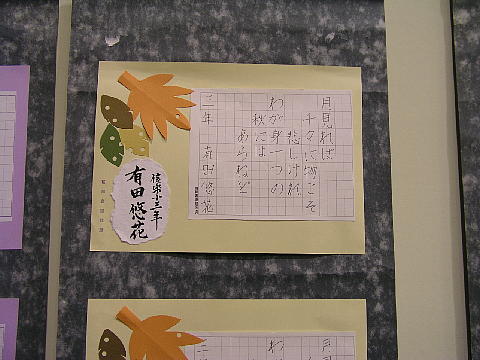 月見れば
千々に物こそ
悲しけれ
わが身一つの
秋には
あらねど
三年 有田悠花
小三年
有田悠花